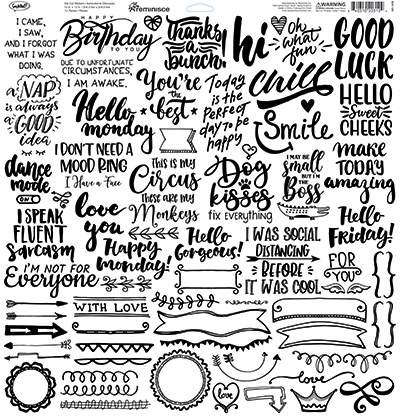 reminisce
I CAME,
I SAW,
AND I FORGOT
WHAT I WAS
DOING.
HAPPY
Birthday
TO YOU
Thanks
a bunch!
hi
Oh
what
fun
GOOD
LUCK
DUE TO UNFORTUNATE
CIRCUMSTANCES,
I AM AWAKE.
chill
a NAP
is always
a GOOD
idea
Hello
monday
You're
the
best
Today
is the
perfect
day to be
happy
Smile
HELLO
Sweet
CHEEKS
I DON'T NEED A
MOOD RING
I Have a Face
make
TODAY
amazing
dance
mode
ON
This is my
Circus
These are my
Monkeys
Dog
kisses
fix everything
I MAY BE
Small
BUT I'M
THE
Boss
I SPEAK
FLUENT
Sarcasm
love
you
Hello
Friday!
Happy
Monday!
Hello
Gorgeous!
I WAS SOCIAL
DISTANCING
BEFORE
IT WAS COOL
FOR
YOU
I'M NOT FOR
Everyone
WITH LOVE
love
love